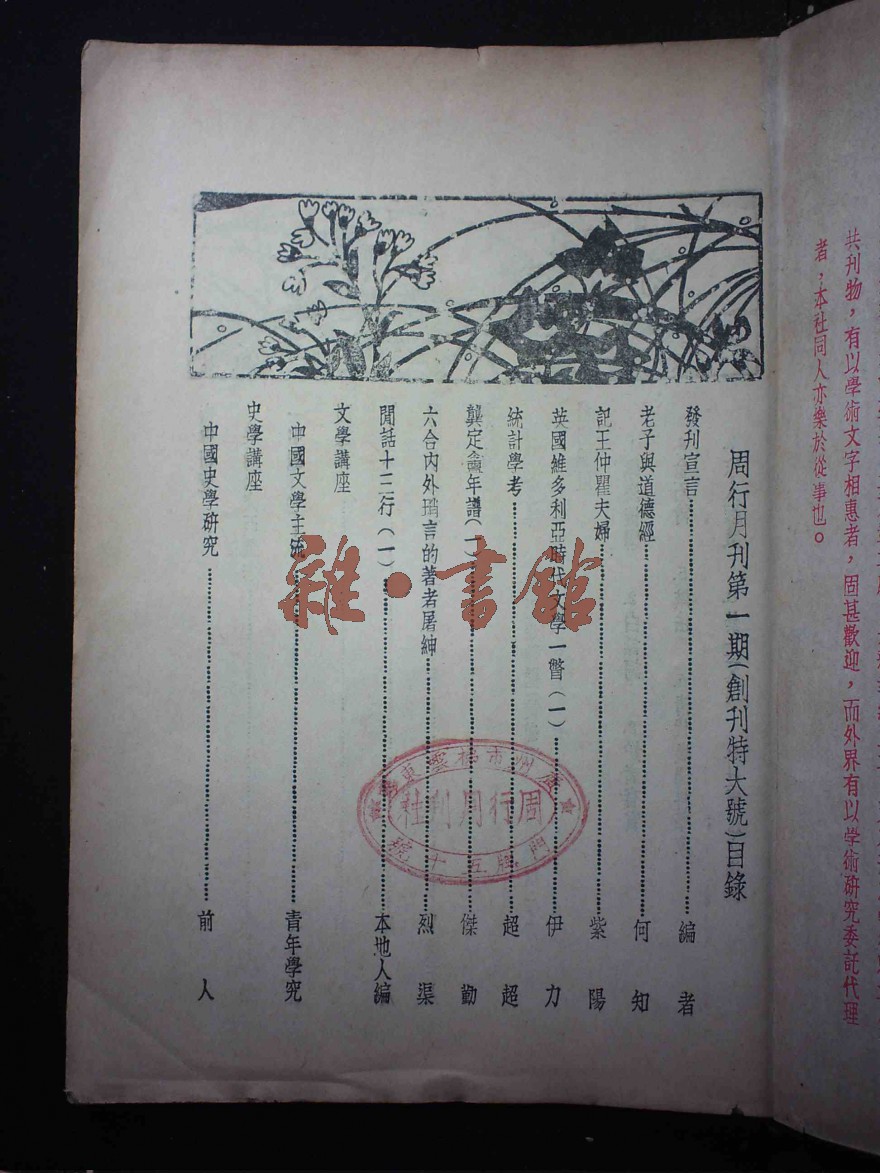 共刊物，有以學術文字相惠者，固甚歡迎，而外界有以學術研究委託代理
者，本社同人亦樂於從事也。
周行月刊第一期(創刊特大號)目錄
發刊宣言 編者
老子與道德經 何知
記王仲瞿夫婦 紫陽
英國維多利亞時代文學一瞥(一) 伊力
統計學考 超超
龔定盦年譜(一) 傑勤
六合內外瑣言的著者屠紳 烈渠
閒話十三行(一) 本地人編
文學講座
中國文學主流 青年學究
史學講座
中國史學研究 前人
雜·書館
州市
東
周行月刊社
門牌五十號